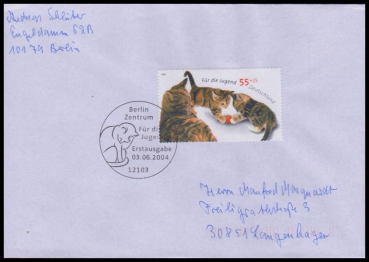 Andreas Schlüter
Engeldamm 62B
10179 Berlin
Für die Jugend 55+25
Deutschland
Berlin
Zentrum
Für die
Jugend
Erstausgabe
03.06.2004
12103
Herrn Manfred Marquardt
Freiligrathstraße 3
30851 Langenhagen